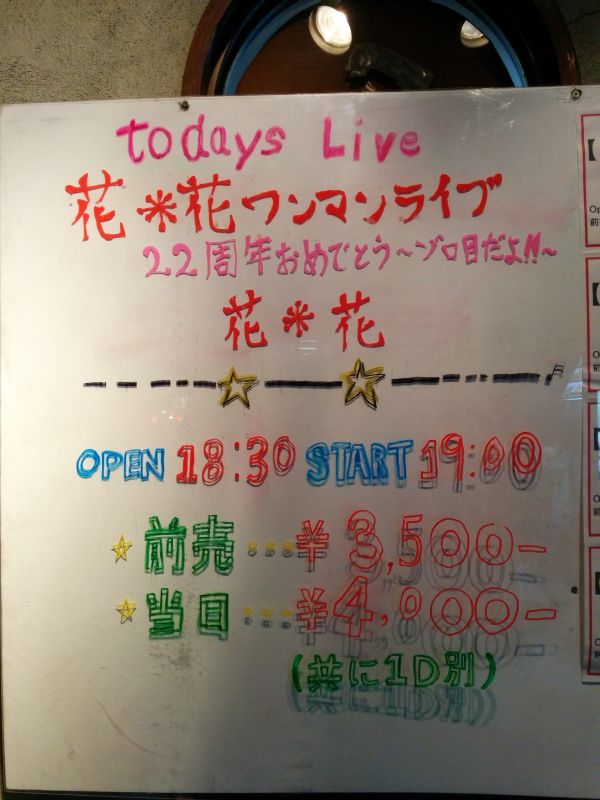 todays Live
花＊花ワンマンライブ
22周年おめでとう～ゾロ目だよ!!～
花＊花
OPEN 18:30 START 19:00
☆前売…¥3,500-
☆当日…¥4,000-
(共に1D別)